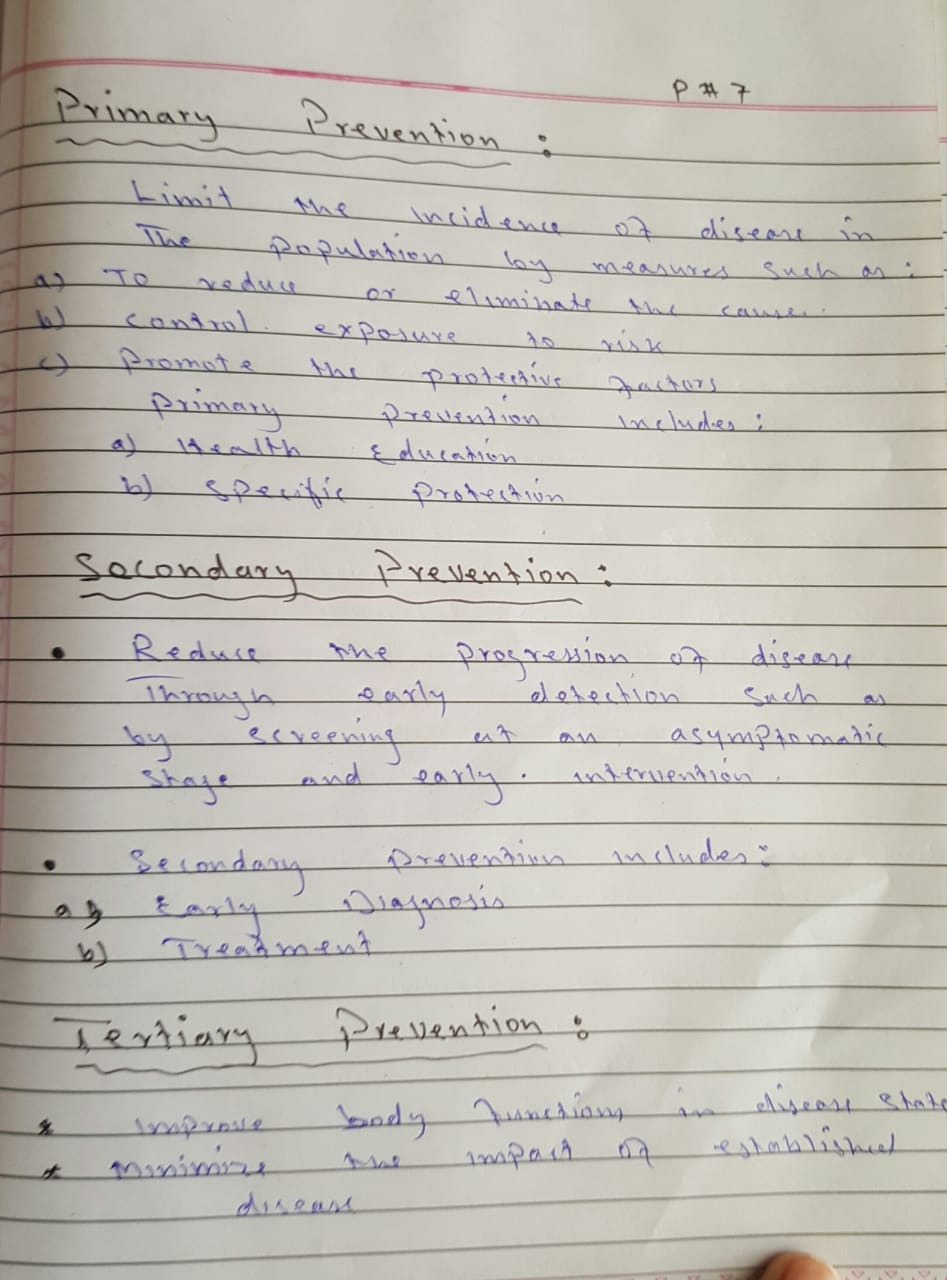 P # 7
Primary Prevention :
Limit the incidence of disease in
The population by measures such as :
a) To reduce or eliminate the cause.
b) control exposure to risk
c) Promote the protective factors
Primary prevention includes :
a) Health Education
b) Specific protection
Secondary Prevention :
• Reduce the progression of disease
Through early detection such as
by screening at an asymptomatic
stage and early . intervention .
• Secondary prevention includes :
a) Early Diagnosis
b) Treatment
Tertiary Prevention :
* Improve body functions in disease state
* Minimize the impact of established
disease